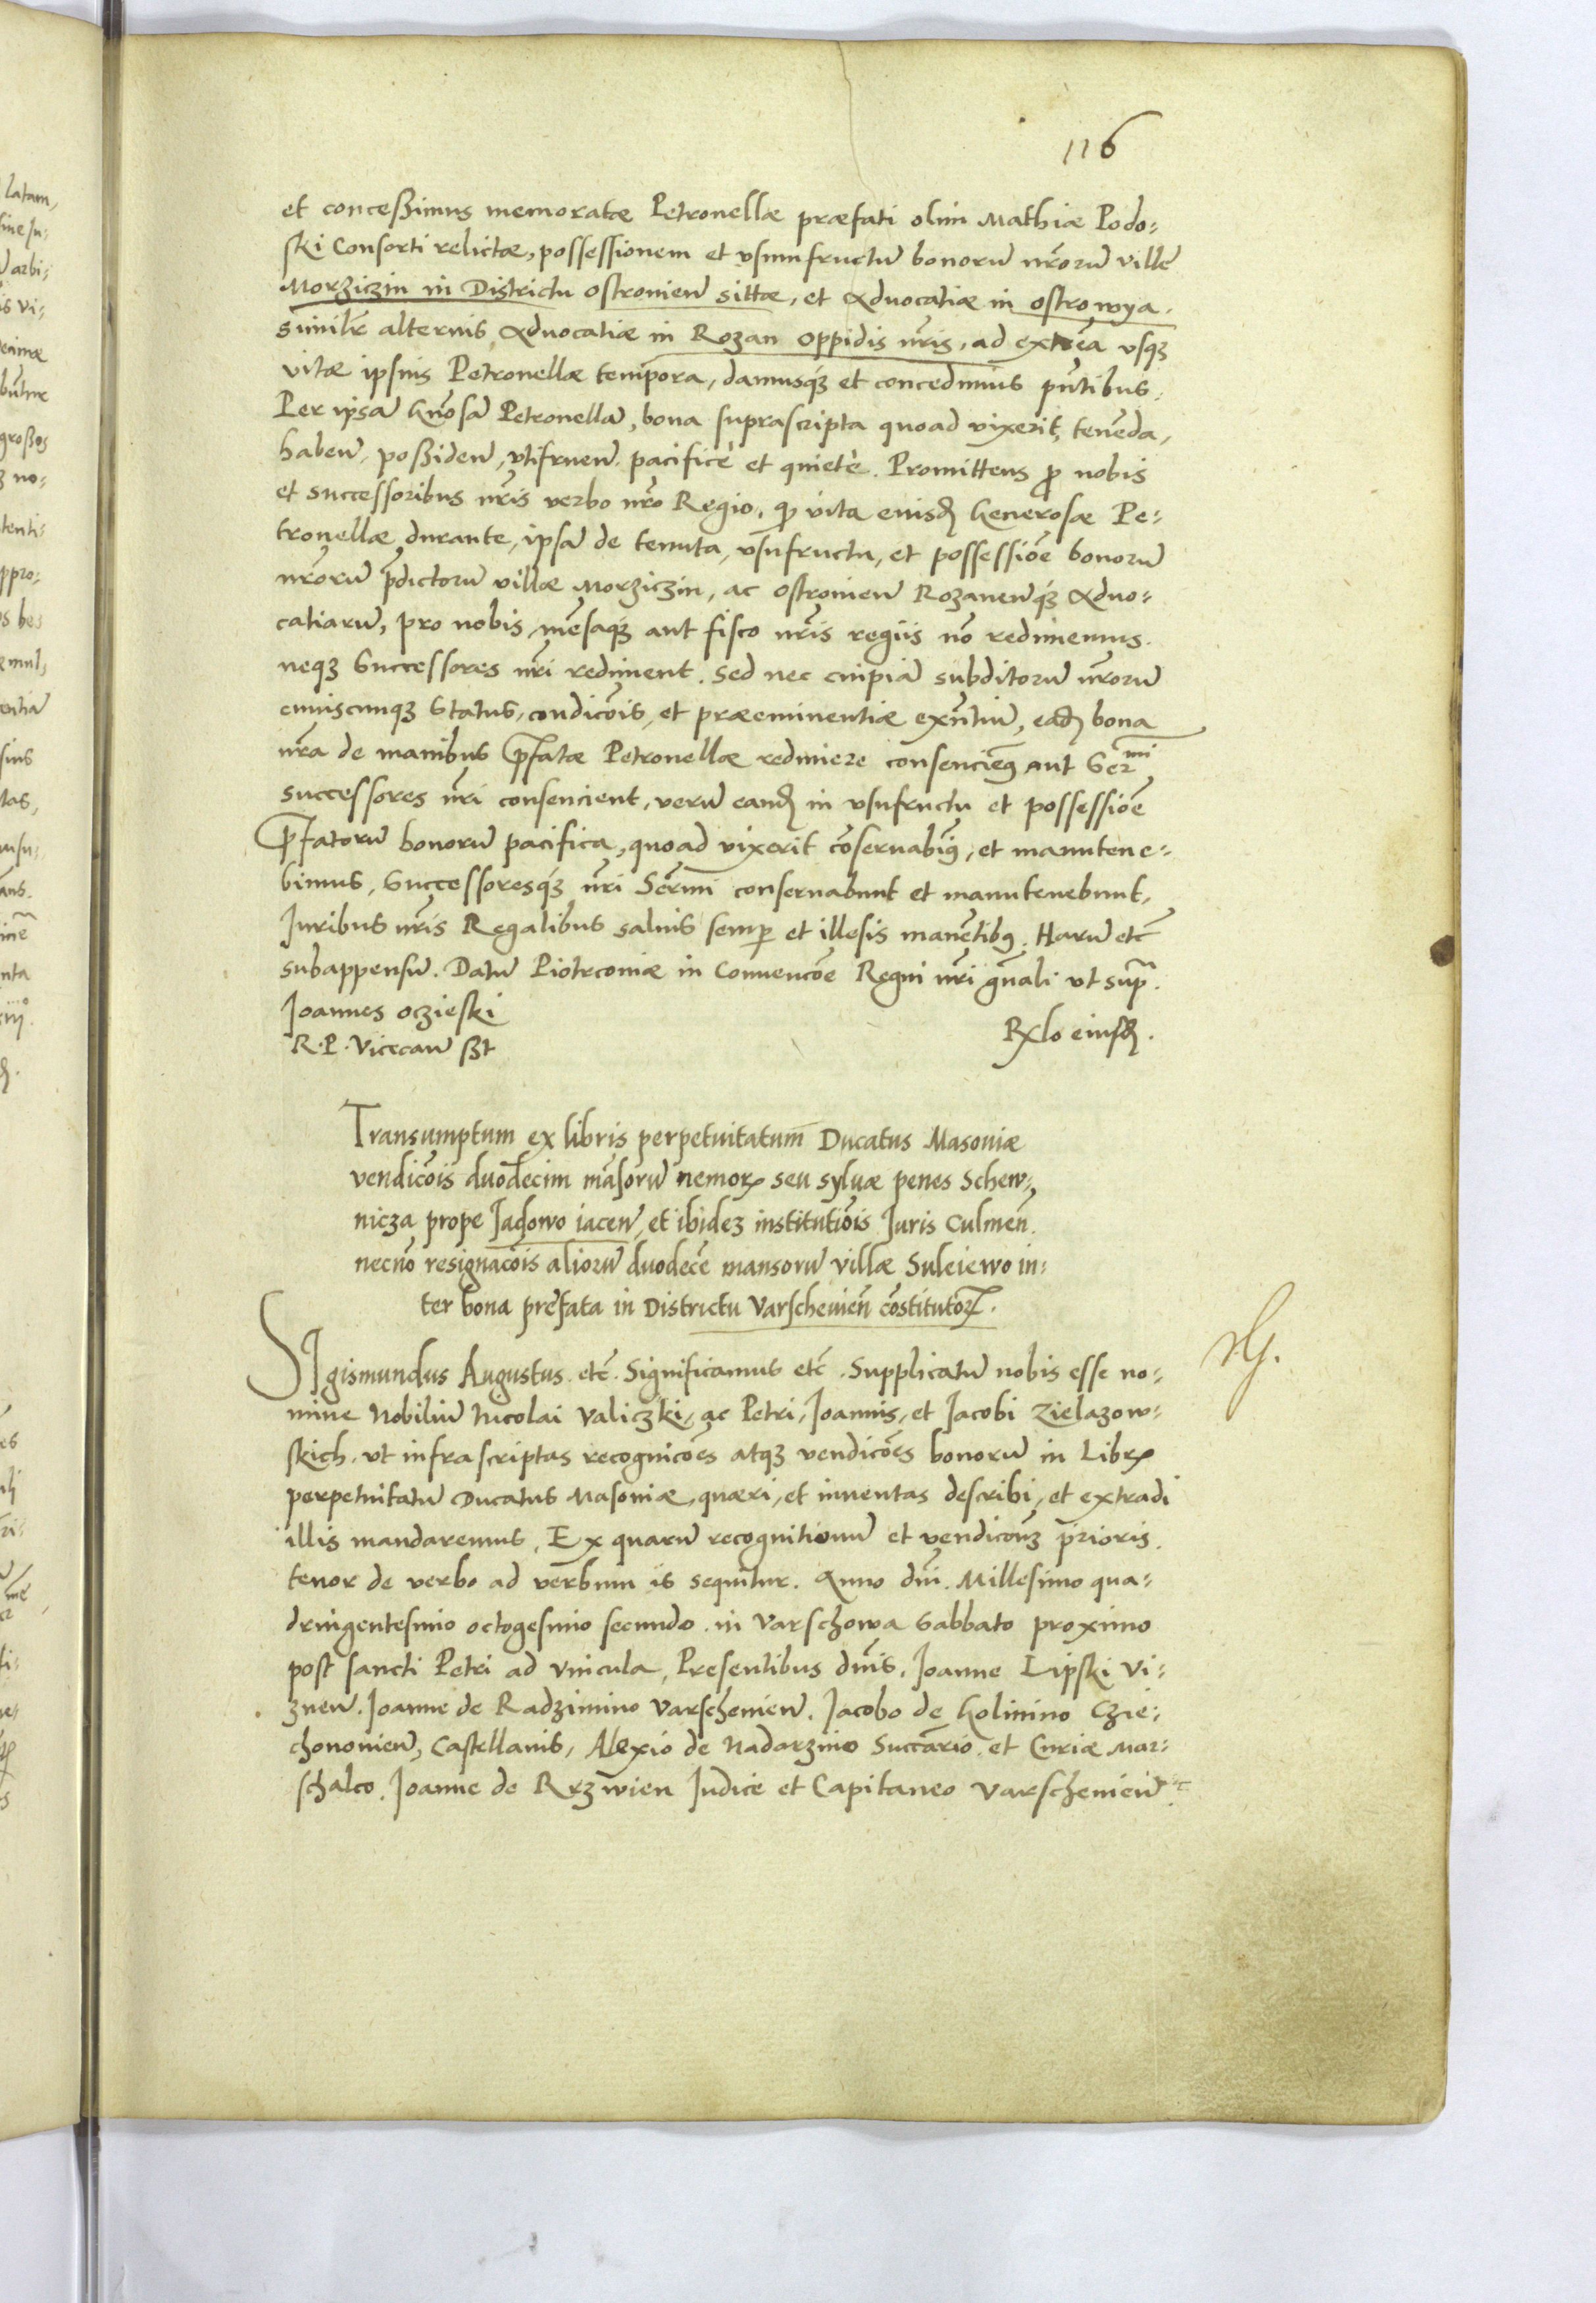 116
et conceßimus memoratæ Petronellæ præfati olim Mathiæ Podo=
ski Consorti relictæ, possessionem et vsumfructū bonorū nr̄orū ville
Morziczin in Districtu Ostrouieñ sittæ, et Aduocatiæ in Ostrowya.
similr̄ alterius Aduocatiæ in Rozan oppidis nr̄is, ad extēa vsqȝ
vitæ ipsius Petronellæ tempora, damusqȝ et concedimus pñtibus.
Per ipsā Gñosā Petronellā, bona suprascripta quoad vixerit, tenēda,
habeñ, poßideñ, vtifrueñ. pacificè et quietè. Promittens ꝓ nobis
et successoribus nr̄is verbo nr̄o Regio, qꝫ vita eiusdꝫ Generosæ Pe=
tronellæ durante, ipsā de tenuta, vsufructu, et possessiōe bonorū
nr̄orū p̄dictorū villæ Morziczin, ac Ostrouieñ Rozaneñqȝ Aduo=
catiarū, pro nobis, mēsaqȝ aut fisco nr̄is regiis nō redimemus.
neqȝ Successores nr̄i rediment. Sed nec cuipiā subditorū nr̄orū
cuiuscunqȝ Status, condicōis, et præeminentiæ exñtiū, eadꝫ bona
nr̄a de manibus p̄fatæ Petronellæ redimere consenciēꝰ aut Ser^mi
successores nr̄i consencient, verū eandꝫ in vsufructu et possessiōe
p̄fatorū bonorū pacifica, quoad vixerit cōseruabiꝰ, et manutene=
bimus, Successoresqȝ nr̄i Serm̄i conseruabunt et manutenebunt,
Iuribus nr̄is Regalibus saluis semꝑ et illesis manētibꝰ. Harū etc̄
subappensū. Datū Piotrcouiæ in Conuencōe Regni nr̄i gñali vt supᵃ.
Joannes Oczieski
R. P. Vicecañ ßt
Rx̄lo eiusdꝫ.
Transumptum ex libris perpetuitatum Ducatus Masouiæ
vendicōis duodecim māsorū nemorꝝ seu syluæ penes Schew=
nicza prope Jadowo iaceñ, et ibidez institutiōis Juris Culmeñ.
necnō resignacōis aliorū duodecē mansorū villæ Suleiewo in=
ter bona prefata in Districtu Varscheuieñ cōstitutorꝝ.
Sigismundus Augustus etc̄. Significamus etc̄. Supplicatū nobis esse no=
mine Nobiliū Nicolai Valiczki, ac Petri, Joannis, et Jacobi Zielazow=
skich, vt infrascriptas recognicōes atqȝ vendicōes bonorū in Librꝭ
perpetuitatū Ducatus Masouiæ, quæri, et inuentas describi, et extradi
illis mandaremus. Ex quarū recognitionū et vendicōnꝫ prioris.
tenor de verbo ad verbum is sequitur. Anno dñi. Millesimo qua=
dringentesimo octogesimo secundo. in Varschowa Sabbato proximo
post sancti Petri ad vincula, Presentibus dñis. Joanne Lipski Vi=
zneñ. Joanne de Radzimino Varscheuieñ. Jacobo de Golimino Czie=
chonouieñ, Castellanis, Alexio de Nadarzino Succario et Curiæ Mar=
schalco. Joanne de Rrzwien Judice et Capitaneo Varscheuieñ